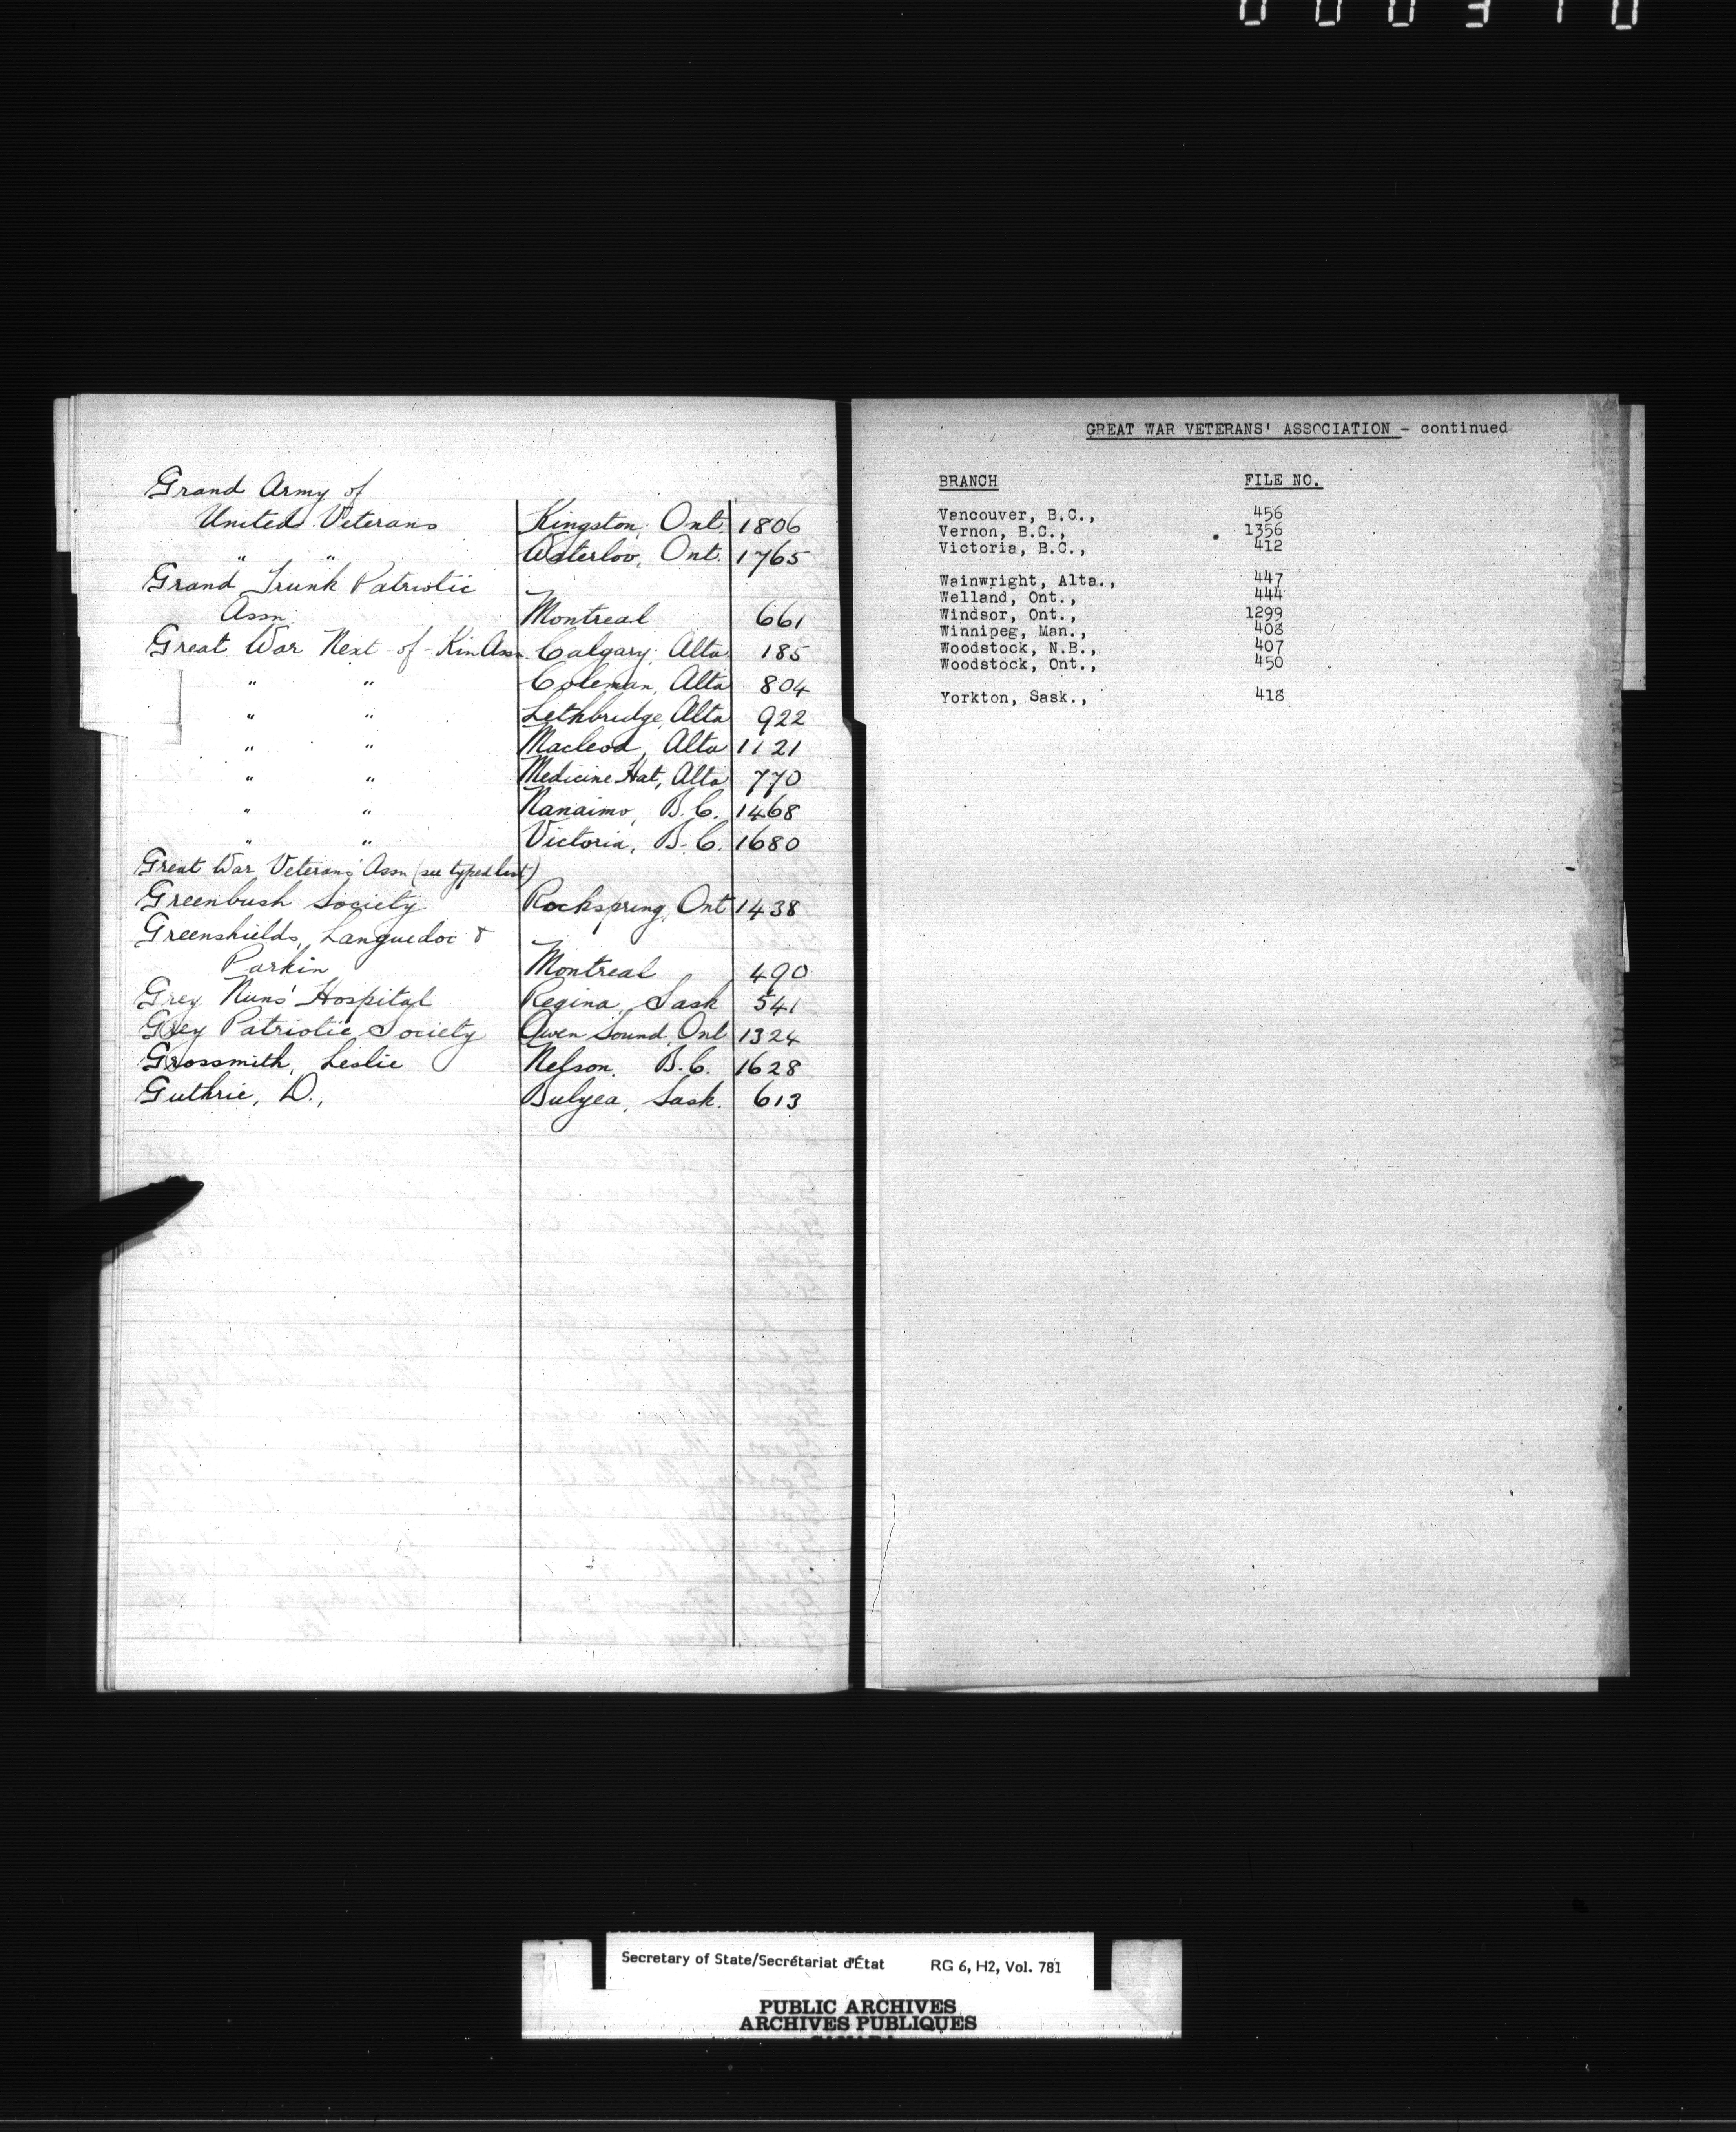 000310
Grand Army of
United Veterans Kingston, Ont. 1806
" " Waterloo, Ont. 1765
Grand Trunk Patriotic
Assn. Montreal 661
Great War Next-of-Kin Assn. Calgary, Alta 185
" " Coleman, Alta 804
" " Lethbridge, Alta 922
" " Macleod, Alta 1121
" " Medicine Hat, Alta 770
" " Nanaimo, B.C. 1468
" " Victoria, B.C. 1680
Great War Veterans' Assn (see typed list)
Greenbush Society Rockspring, Ont 1438
Greenshields, Languedoc &
Parkin Montreal 490
Grey Nuns' Hospital Regina, Sask 541
Grey Patriotic Society Owen Sound, Ont 1324
Grossmith, Leslie Nelson, B.C. 1628
Guthrie, D., Bulyea, Sask. 613
GREAT WAR VETERANS' ASSOCIATION - continued
BRANCH FILE NO.
Vancouver, B.C., 456
Vernon, B.C., 1356
Victoria, B.C., 412
Wainwright, Alta., 447
Welland, Ont., 444
Windsor, Ont., 1299
Winnipeg, Man., 408
Woodstock, N.B., 407
Woodstock, Ont., 450
Yorkton, Sask., 418
Secretary of State/Secrétariat d'État RG 6, H2, Vol. 781
PUBLIC ARCHIVES
ARCHIVES PUBLIQUES